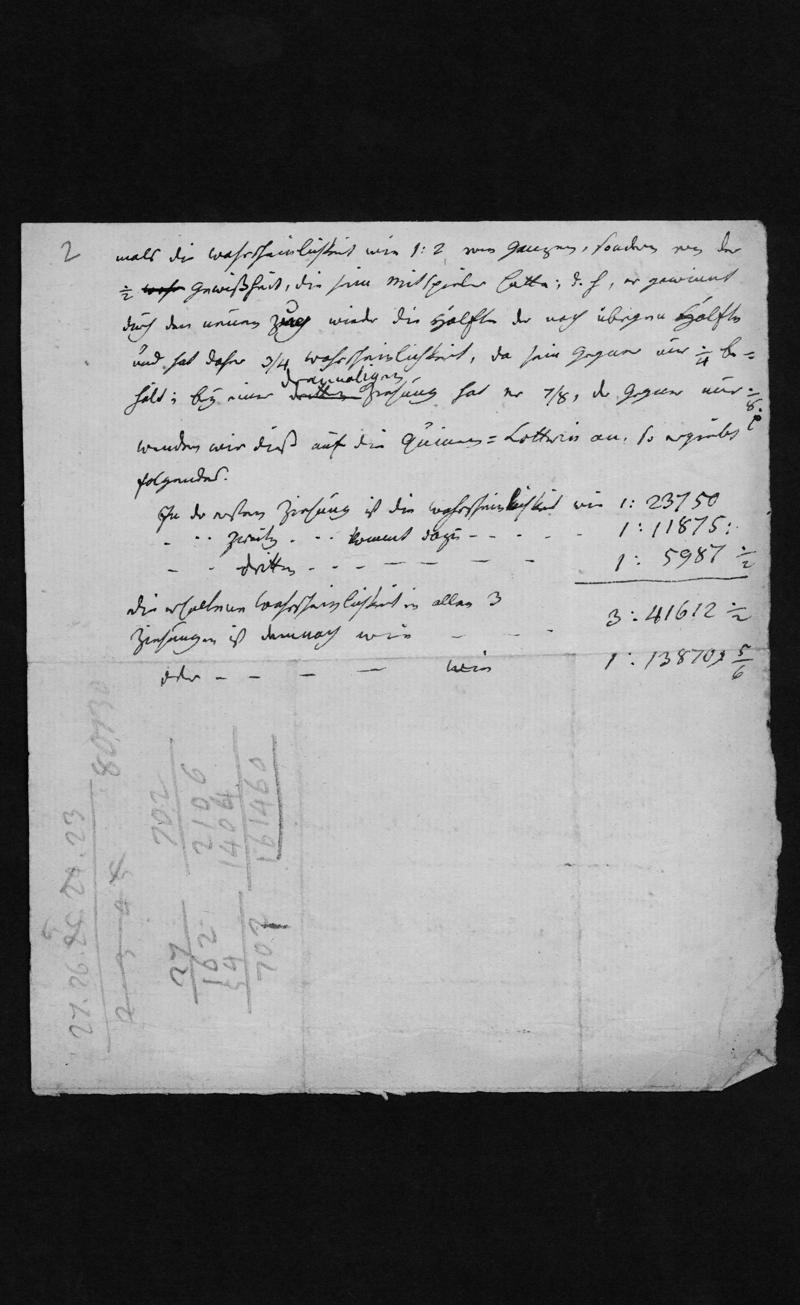 2
mals die Wahrscheinlichkeit wie 1:2 vom ganzen, sondern von der
1/2 Gewißheit, die sein Mitspieler hatte; d. h. er gewinnt
durch den neuen Zug wieder die Hälfte der noch übrigen Hälfte
und hat daher 3/4 Wahrscheinlichkeit, da sein Gegner nur 1/4 be=
dreymaligen
hält; bey einer dritten Ziehung hat er 7/8, der Gegner nur 1/8.
wenden wir dieß auf die Quinen=Lotterie an, so ergiebt
folgendes.
In der ersten Ziehung ist die Wahrscheinlichkeit wie 1: 23750
- - - zweiten - - kommt dazu - - - - 1: 11875:
- - dritten - - - - - - 1: 5987 1/2
die erhaltene Wahrscheinlichkeit in allen 3
Ziehungen ist demnach wie - - - 3: 41612 1/2
oder - - - - wie 1: 13870 5/6
27.26.25.24.23
2 3 4 5
80730
27
162
54
702
702
2106
1404
161460